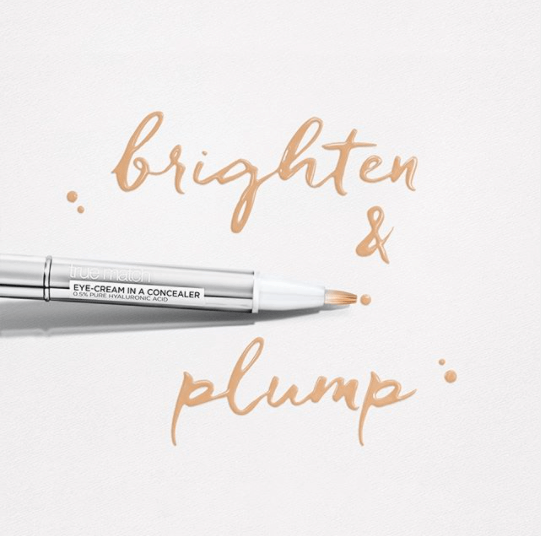 brighten
&
true match
EYE-CREAM IN A CONCEALER
0.5% PURE HYALURONIC ACID
plump